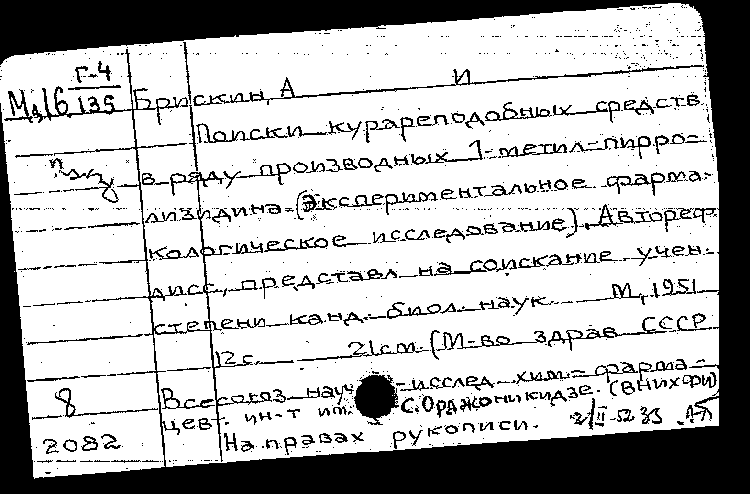 Г-4
М316 135 Брискин, А И
Поиски курареподобных средств
в ряду производных 1-метил-пирро-
лизидина. (Экспериментальное фарма-
кологическое исследование). Автореф
дисс., представл на соискание учен.
степени канд. биол. наук. М, 1951
12 с. 21 см. (М-во здрав СССР
8 Всесоюз науч -исслед. хим.-фарма-
цев. ин-т им. С. Орджоникидзе. (ВНИХФИ)
2082 На правах рукописи. 2/II-52 33